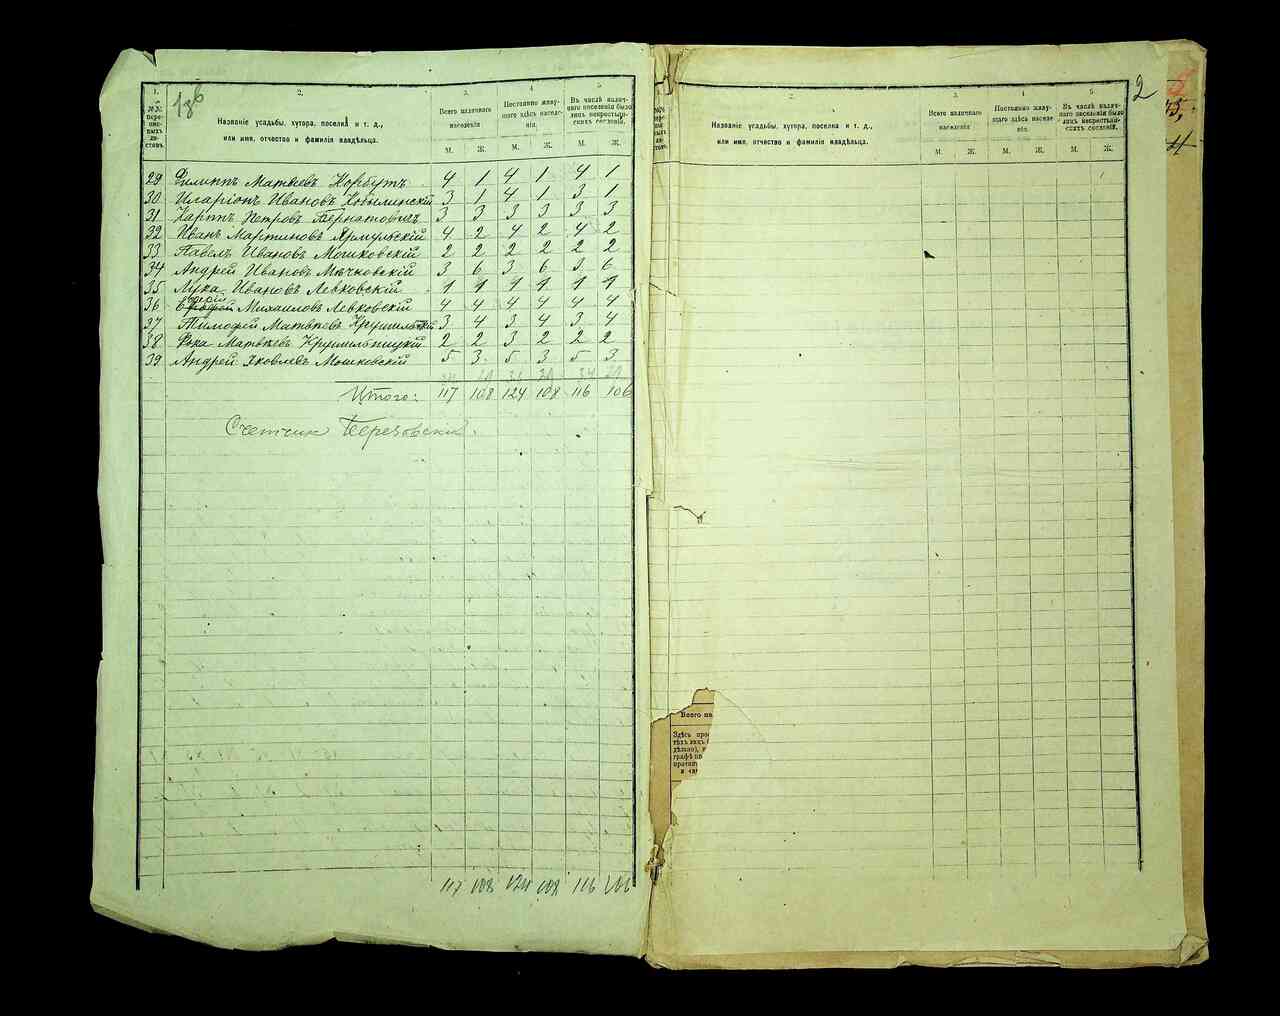 1зб
1. 2. 3. 4. 5.
№№ перепис­ныхъ листовъ.
Названіе усадьбы, хутора, поселка и т. д., или имя, отчество и фамилія владѣльца.
Всего наличнаго населенія
Постоянно живущаго здѣсь населенія.
Въ числѣ наличнаго населенія было лицъ некрестьянскихъ сословій.
М. Ж. М. Ж. М. Ж.
29 Филиппъ Матвеевъ Корбутъ 4 1 4 1 4 1
30 Иларіонъ Ивановъ Кобылинскій 3 1 4 1 3 1
31 Карпъ Петровъ Бернатовичъ 3 3 3 3 3 3
32 Иванъ Мартиновъ Ярмульскій 4 2 4 2 4 2
33 Павелъ Ивановъ Мошковскій 2 2 2 2 2 2
34 Андрей Ивановъ Мѣчковскій 3 6 3 6 3 6
35 Лука Ивановъ Левковскій 1 1 1 1 1 1
36 Михаиловъ Левковскій 4 4 4 4 4 4
37 Тимофей Матвѣевъ 3 4 3 4 3 4
38 Фока Матвѣевъ 2 2 3 2 2 2
39 Андрей Яковлевъ Мошковскій 5 3 5 3 5 3
Итого: 117 108 124 108 116 106
Счетчик Березовский
117 108 124 108 116 106
2
2. 3. 4. 5.
Названіе усадьбы, хутора, поселка и т. д., или имя, отчество и фамилія владѣльца.
Всего наличнаго населенія
Постоянно живущаго здѣсь населенія.
Въ числѣ наличнаго населенія было лицъ некрестьянскихъ сословій.
М. Ж. М. Ж. М. Ж.
Всего на
Здѣсь